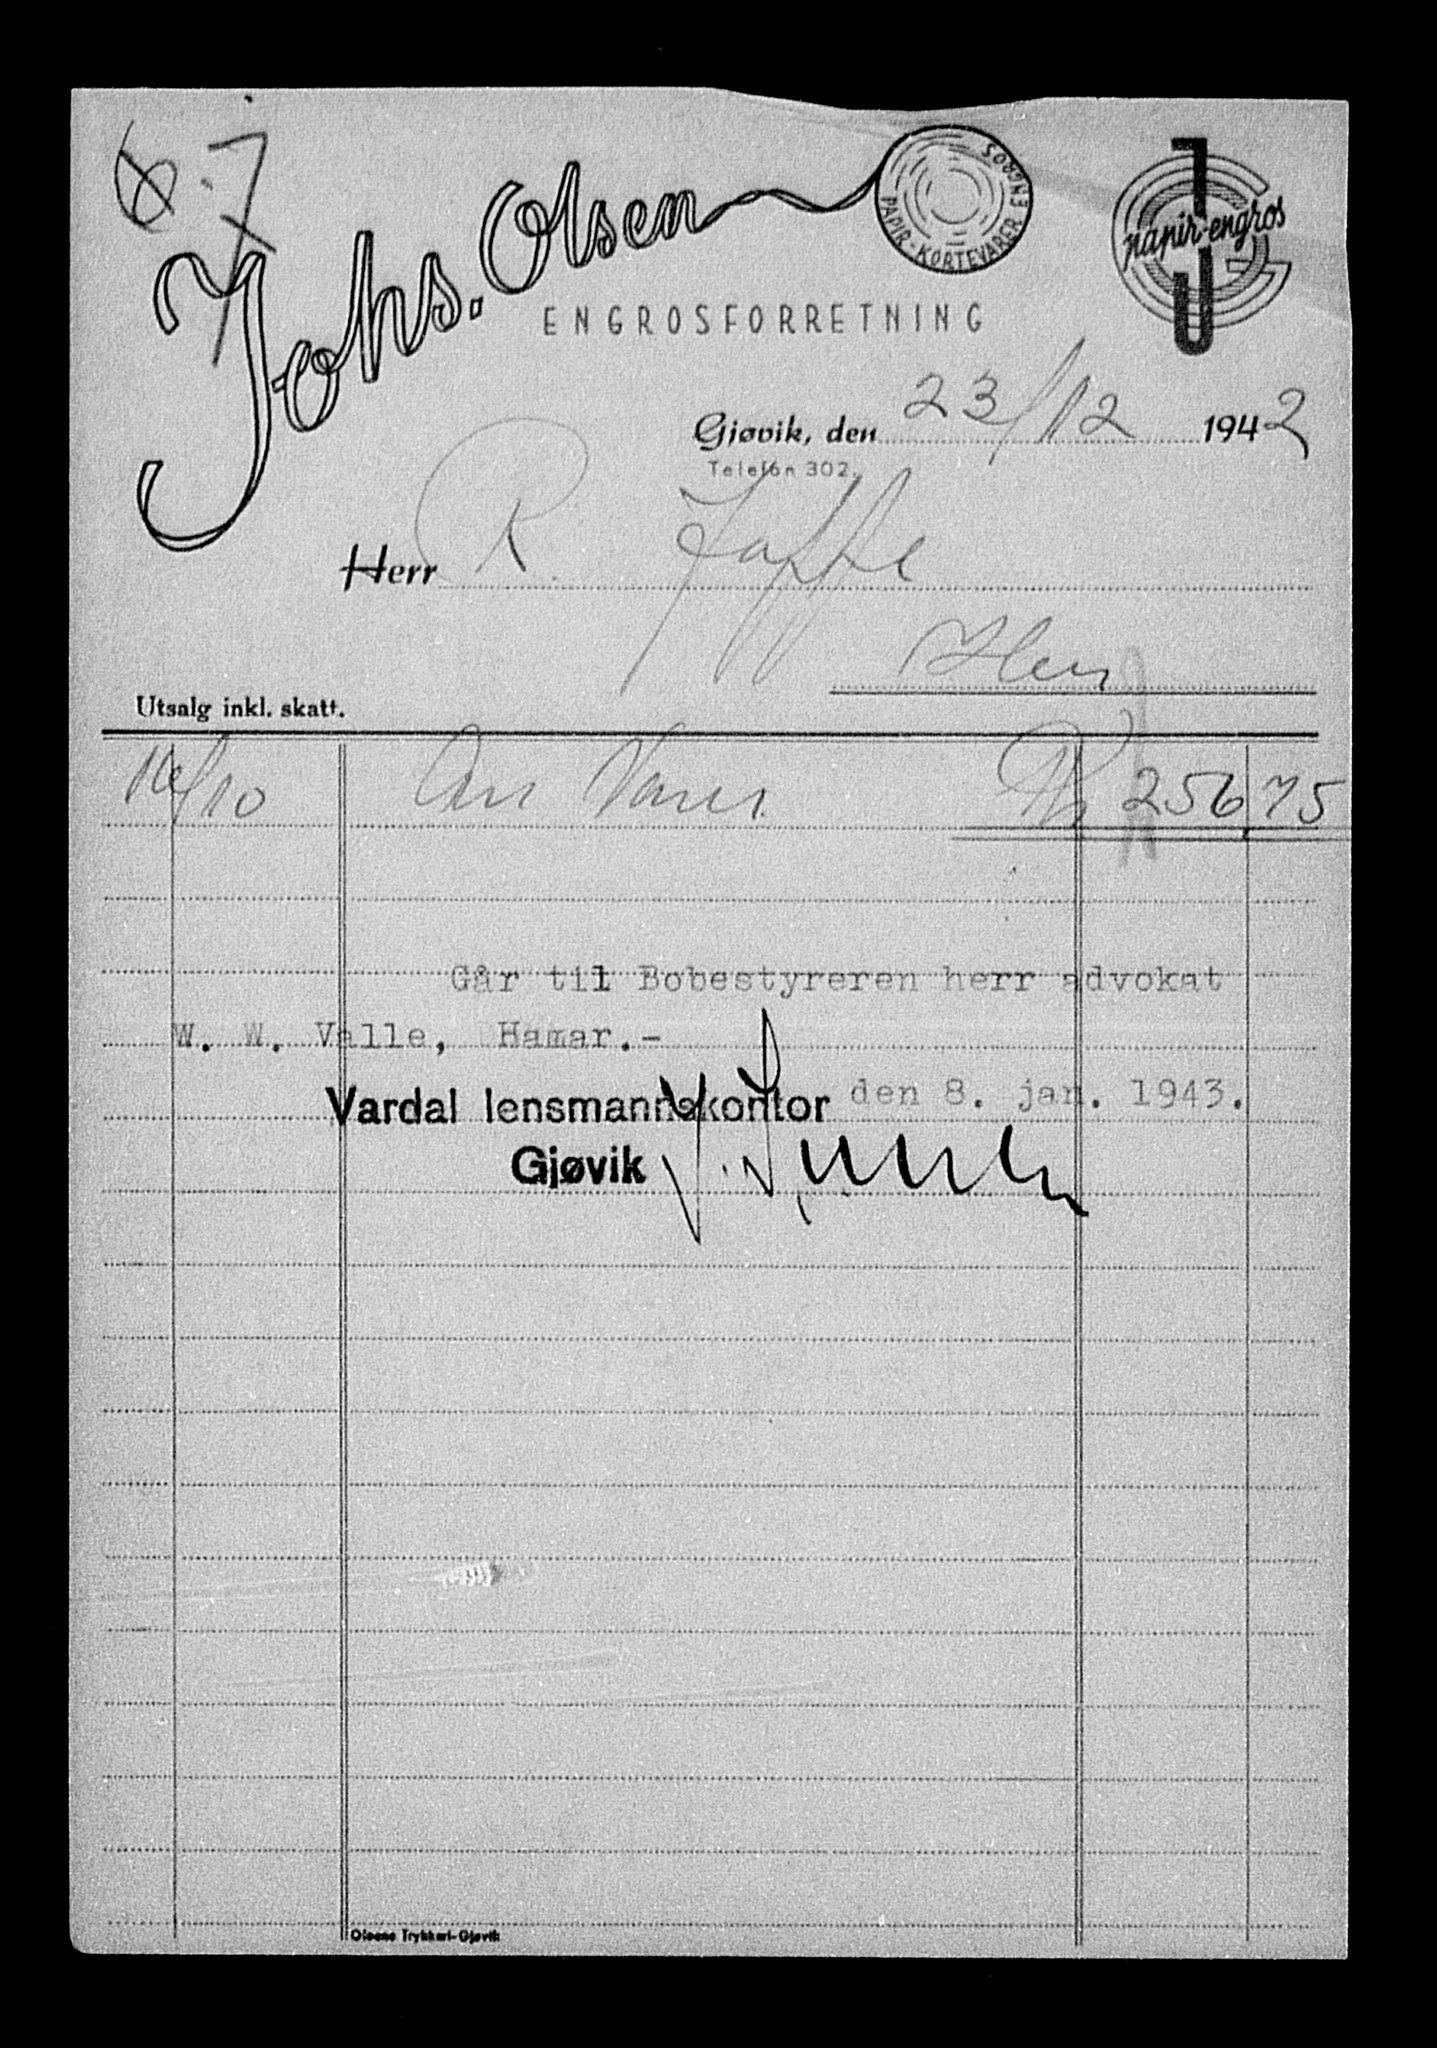 Johs. Olsen
PAPIR-KORTEVARER ENGROS
papir-engros
ENGROSFORRETNING
Gjøvik, den 23/12 1942
Telefon 302.
Herr R. Jaffe
Utsalg inkl. skatt.
/10 Varer Kr 256,75
Går til Bobestyreren herr advokat
W. W. Valle, Hamar.-
Vardal lensmannskontor den 8. jan. 1943.
Gjøvik
Olsens Trykkeri-Gjøvik